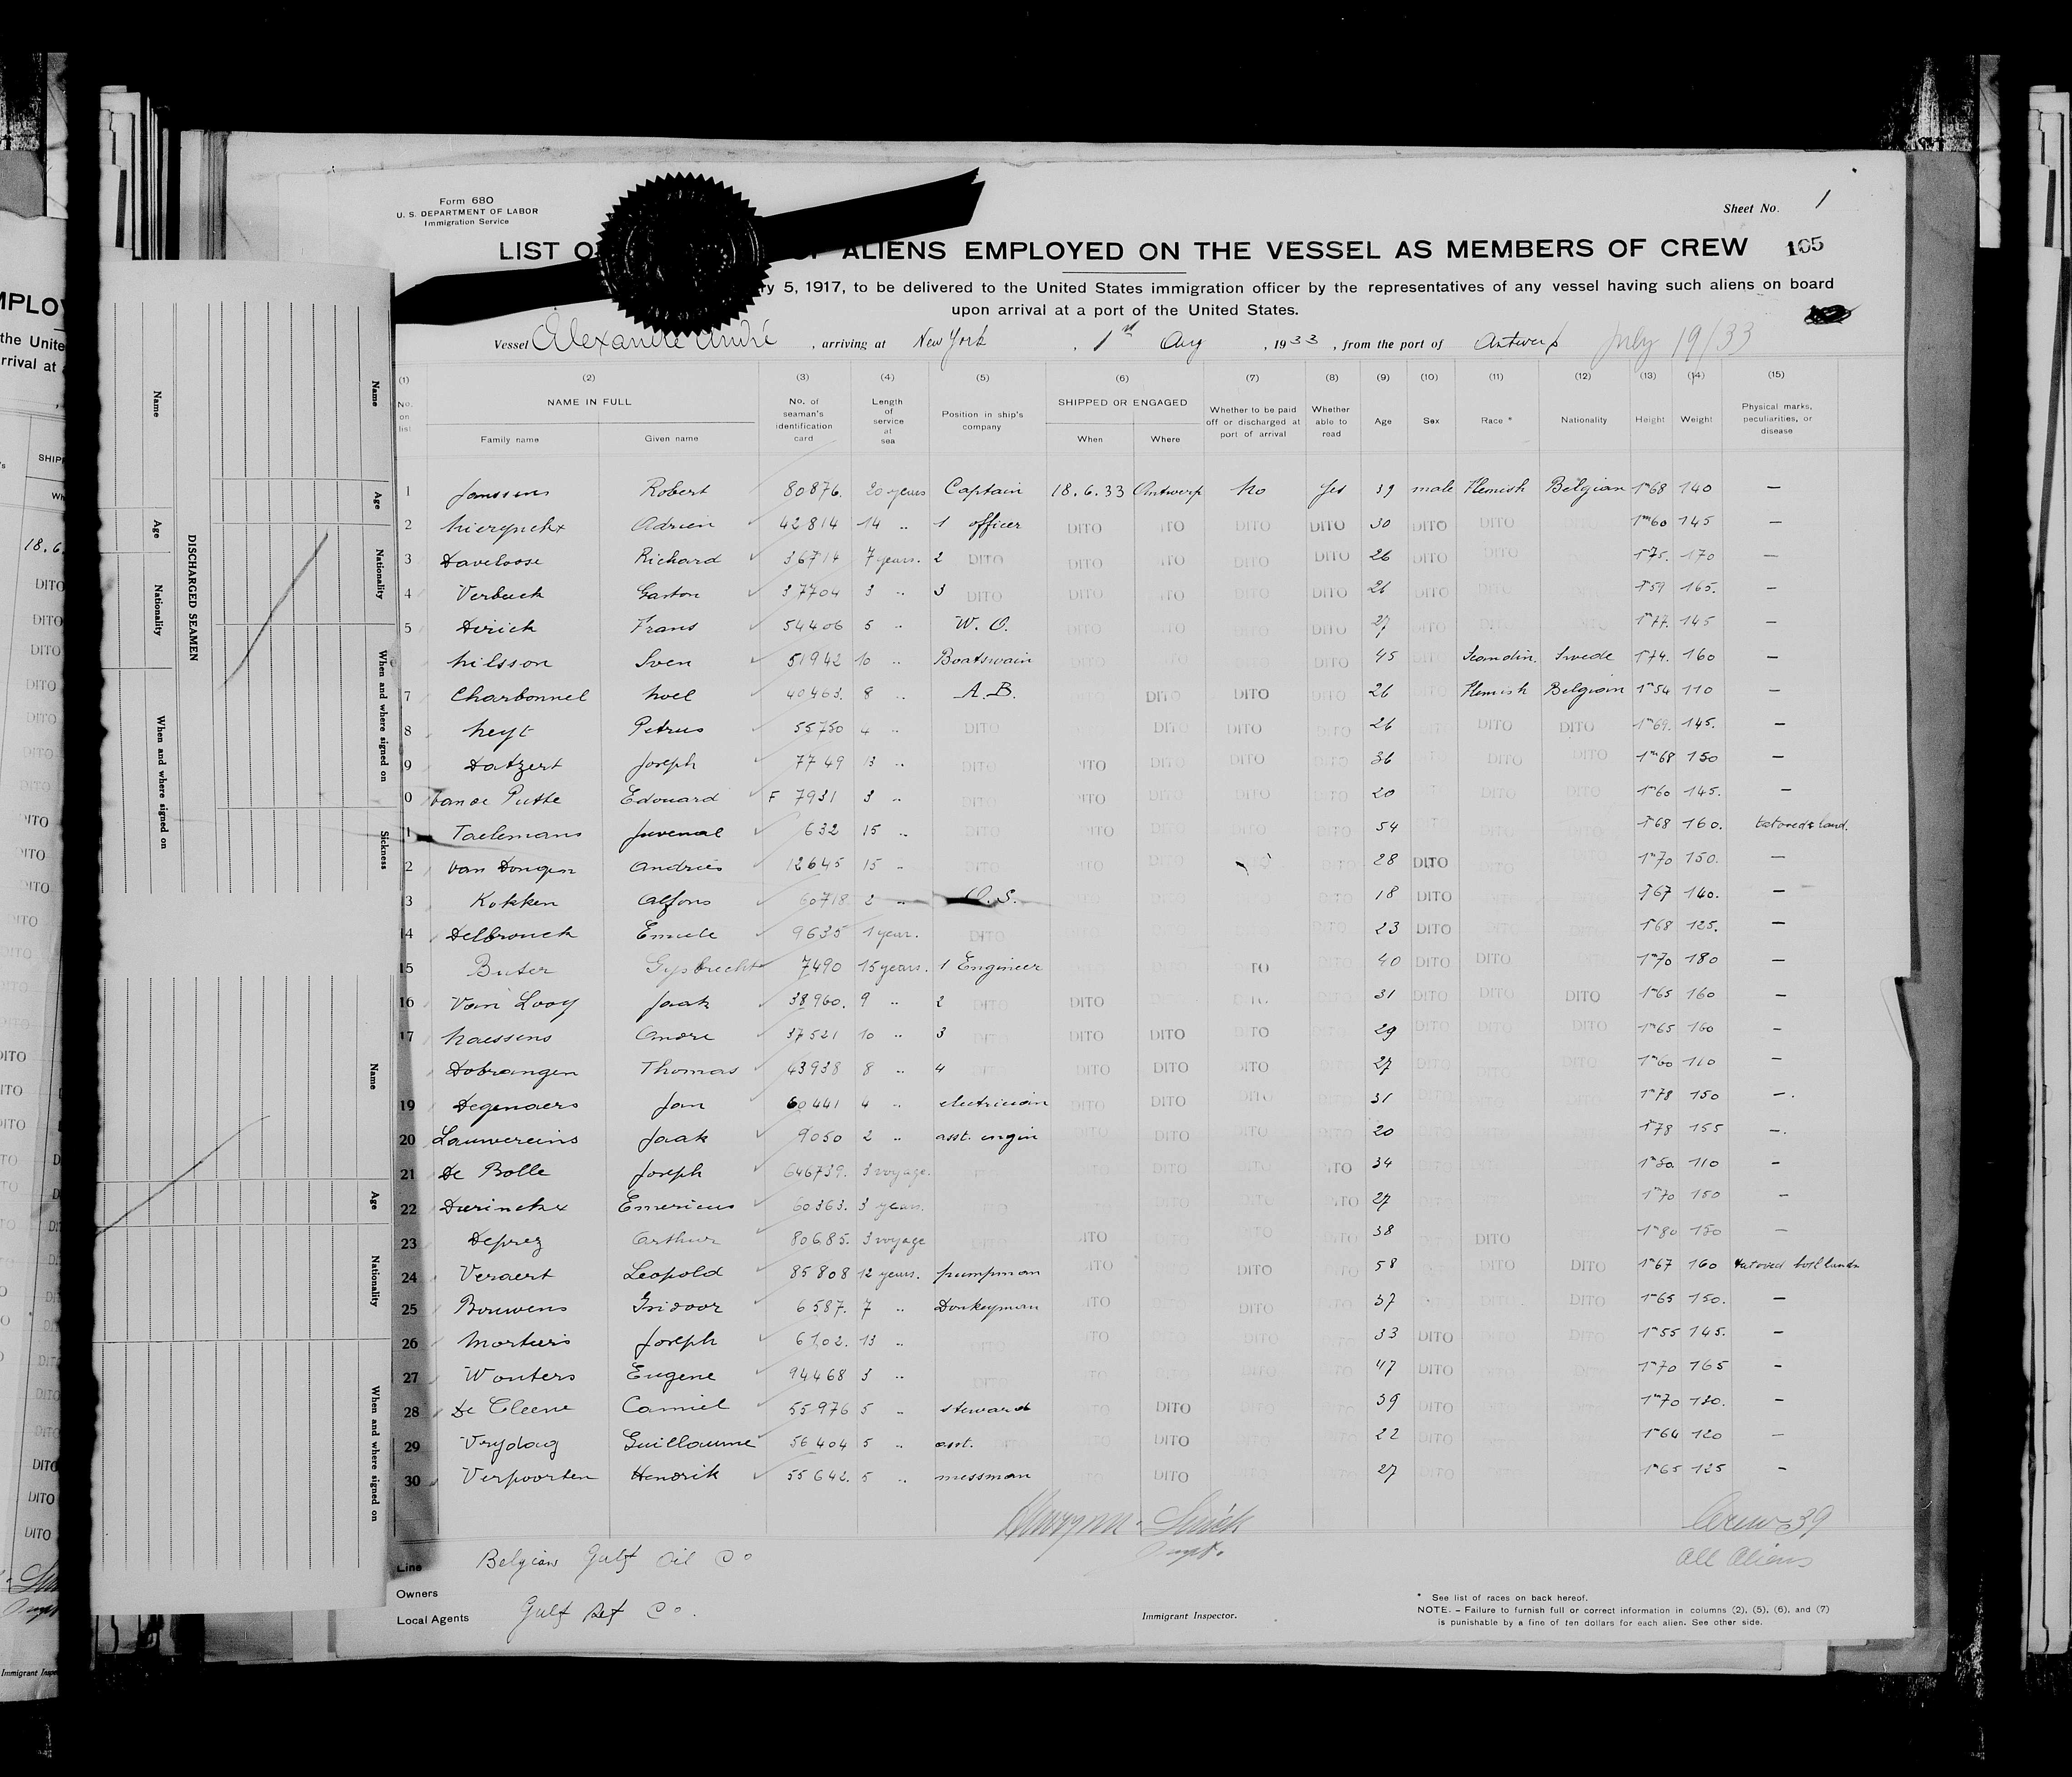 Form 680
U. S. DEPARTMENT OF LABOR
Immigration Service
Sheet No. 1
LIST O ALIENS EMPLOYED ON THE VESSEL AS MEMBERS OF CREW 105
ry 5, 1917, to be delivered to the United States immigration officer by the representatives of any vessel having such aliens on board
upon arrival at a port of the United States.
Vessel Alexandre André , arriving at New York , 1st Aug , 1933 , from the port of Antwerp July 19/33
(1) (2) (3) (4) (5) (6) (7) (8) (9) (10) (11) (12) (13) (14) (15)
No. on list NAME IN FULL Family name Given name No. of seaman's identification card Length of service at sea Position in ship's company SHIPPED OR ENGAGED When Where Whether to be paid off or discharged at port of arrival Whether able to read Age Sex Race * Nationality Height Weight Physical marks, peculiarities, or disease
1 Janssens Robert 80876. 20 years Captain 18.6.33 Antwerp No Yes 39 male Flemish Belgian 1m68 140 —
2 Adrien 42814 14 .. 1 officer DITO ITO DITO DITO 30 DITO DITO 1m60 145 —
3 Daveloose Richard 36714 7 years. 2 DITO DITO ITO DITO DITO 26 DITO DITO 1m75. 170 —
4 Verbeeck Gaston 37704 3 .. 3 DITO DITO ITO DITO DITO 26 DITO 1m59 165. —
5 Dirick Frans 54406 5 .. W. O. DITO ITO DITO DITO 27 DITO 1m77. 145 —
Nilsson Sven 51942 10 .. Boatswain DITO 45 Scandin. Swede 1m74. 160 —
7 Charbonnel Noel 40463. 8 .. A.B. DITO DITO DITO 26 Flemish Belgian 1m54 110 —
8 Neyt Petrus 55750 4 .. DITO DITO DITO 26 DITO DITO 1m69. 145. —
9 Datzert Joseph 7749 13 .. DITO ITO DITO DITO 36 DITO DITO 1m68 150 —
0 Van de Putte Edouard F 7931 3 .. DITO ITO DITO DITO 20 DITO DITO 1m60 145. —
1 Taelemans Juvenal 632 15 .. DITO DITO 54 1m68 160.
2 Van Dongen Andries 12645 15 .. DITO ITO 28 DITO 1m70 150. —
3 Kokken Alfons 60718 2 .. O. S. 18 DITO 1m67 140. —
14 Delbrouck Emiele 9635 1 year. DITO 23 DITO 1m68 125. —
15 Buter Gysbrecht 7490 15 years. 1 Engineer TO 40 DITO DITO 1m70 180 —
16 Van Looy Jaak 38960. 9 .. 2 DITO DITO 31 DITO DITO DITO 1m65 160 —
17 Naessens Andre 37521 10 .. 3 DITO DITO DITO DITO 29 DITO DITO DITO 1m65 160 —
Dobrangen Thomas 43938 8 .. 4 DITO DITO DITO 27 DITO 1m60 110 —
19 Degenaers Jan 60441 4 .. electrician DITO DITO DITO 31 1m78 150 —.
20 Lauwereins Jaak 9050 2 .. asst. engin DITO DITO DITO 20 1m78 155 —.
21 De Bolle Joseph 646739. 3 voyage. DITO ITO 34 110 —
22 Dierinckx Emericus 60363. 3 years. DITO ITO 27 1m70 150 —
23 Deprez Arthur 80685. 3 voyage ITO DITO 38 DITO 1m80 150 —
24 Veraert Leopold 85808 12 years. pumpman ITO DITO 58 DITO DITO 1m67 160
25 Bouwens Isidoor 6587. 7 .. Donkeyman ITO DITO 37 DITO 1m65 150. —
26 Mortiers Joseph 6102. 13 .. ITO DITO 33 DITO DITO 1m55 145. —
27 Wouters Eugene 94468 3 .. DITO 47 DITO 1m70 165 —
28 De Cleene Camiel 55976 5 .. steward DITO 39 DITO 1m70 —
29 Vrydag Guillaume 56404 5 .. asst. DITO DITO 22 DITO 1m64 120 —
30 Verpoorten Hendrik 55642. 5 .. messman DITO 27 1m65 125 —
Crew 39
All Aliens
Line Belgian Gulf Oil Co
Owners
Local Agents Gulf Ref Co.
Immigrant Inspector.
* See list of races on back hereof.
NOTE. - Failure to furnish full or correct information in columns (2), (5), (6), and (7)
is punishable by a fine of ten dollars for each alien. See other side.
DISCHARGED SEAMEN
Name
Age
Nationality
When and where signed on
Name
Age
Nationality
When and where signed on
Sickness
Name
Age
Nationality
When and where signed on